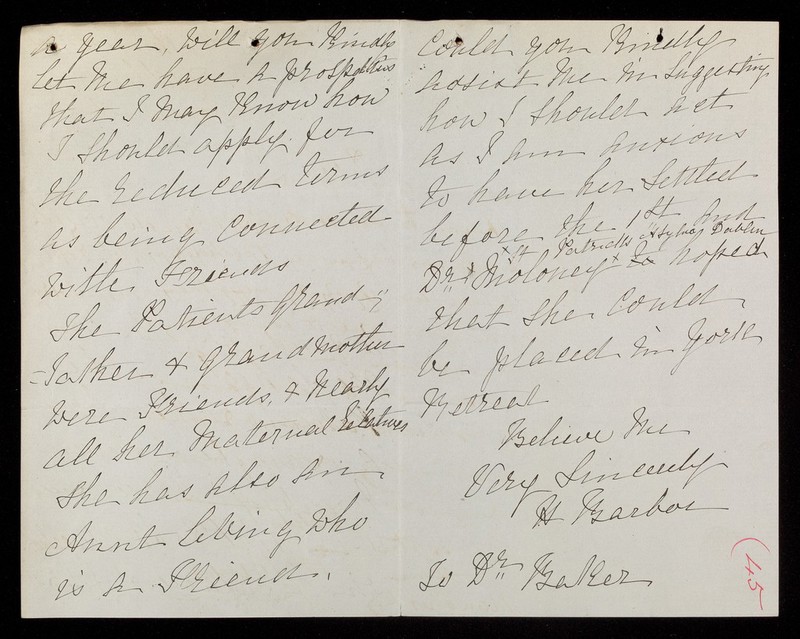 a year, will you kindly
let me have a prospectus
that I may know how
I should apply for
the reduced terms
as being connected
with Friends
The Patients Grand-
-father & grandmother
were Friends, & nearly
all her maternal relatives
She has also an
Aunt living who
is a Friend.
Could you kindly
assist me in suggesting
how I should act
as I am anxious
to have her settled
before the 1st and
x St Patricks Asylum Dublin
Dr Moloney x hoped
that she could
be placed in York
Retreat
Believe me
Very Sincerely
H Barbor
To Dr Baker
(45